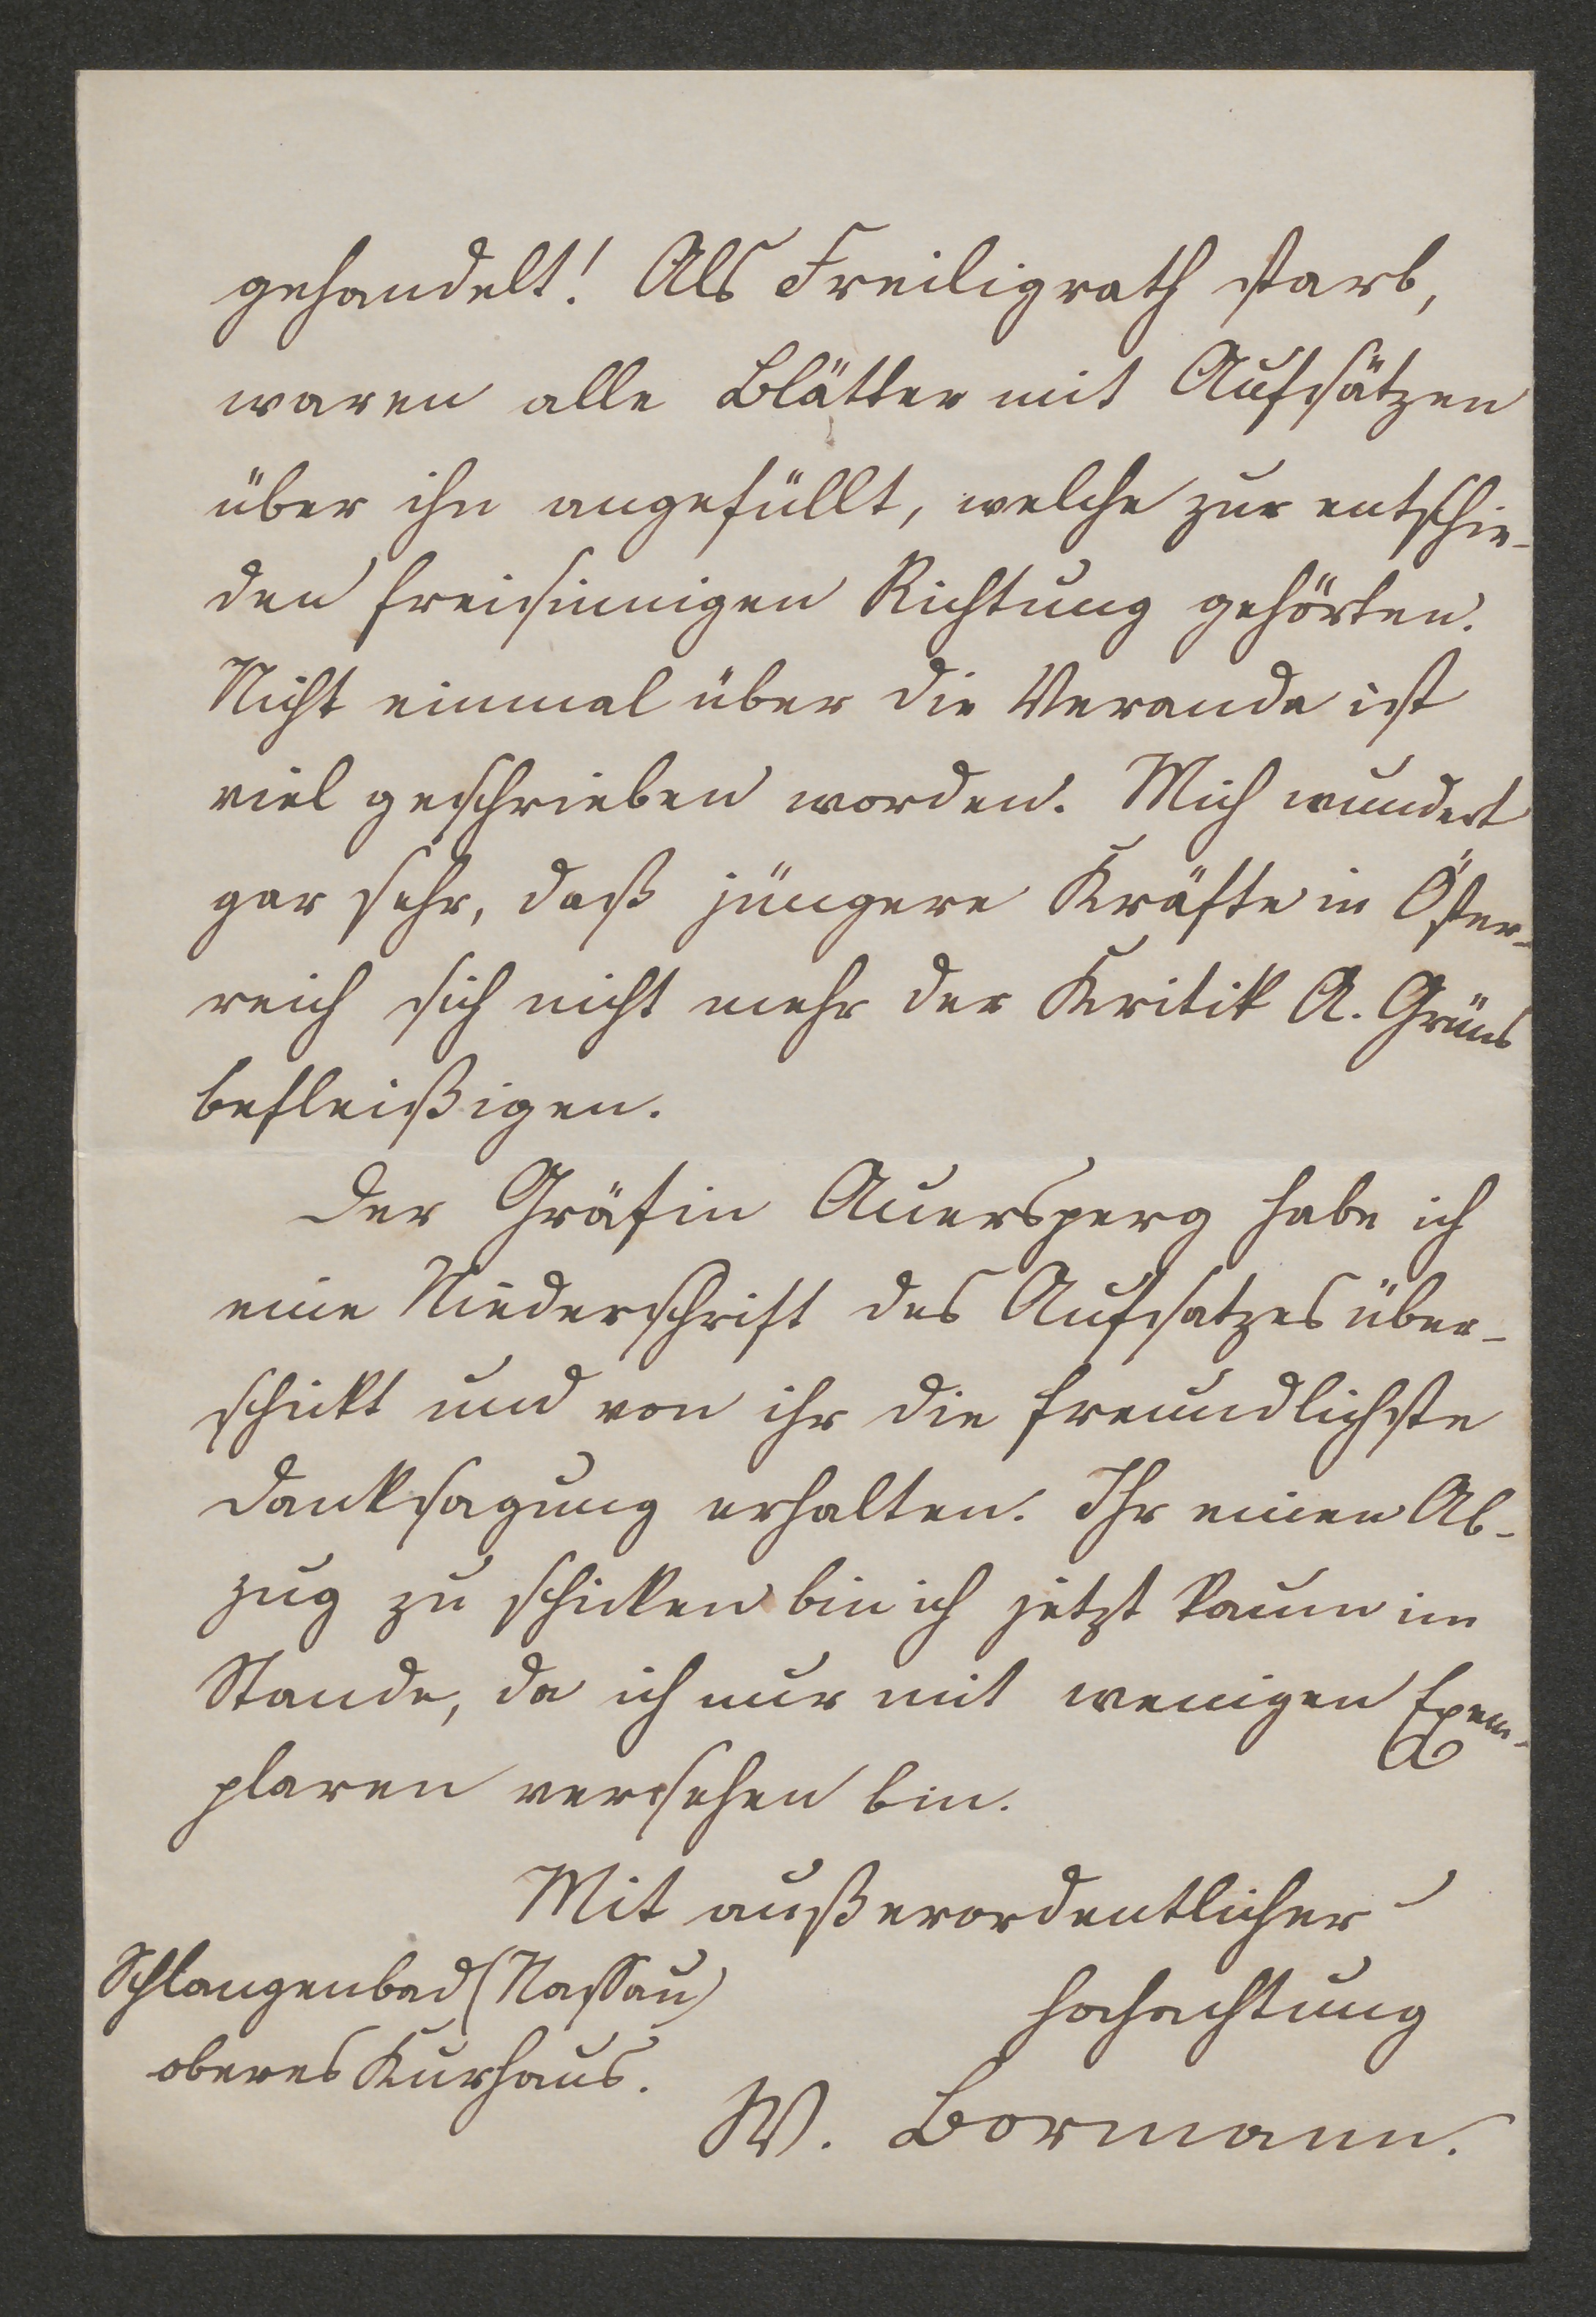 gehandelt! Als Freiligrath starb,
waren alle Blätter mit Aufsätzen
über ihn angefüllt, welche zur entschie-
den freisinnigen Richtung gehörten.
Nicht einmal über die Veranda ist
viel geschrieben worden. Mich wundert
gar sehr, daß jüngere Kräfte in Öster-
reich sich nicht mehr der Kritik A. Grüns
befleißigen.
Der Gräfin Auersperg habe ich
eine Niederschrift des Aufsatzes über-
schickt und von ihr die freundlichste
Danksagung erhalten. Ihr einen Ab-
zug zu schicken bin ich jetzt kaum im
Stande, da ich nur mit wenigen Exem-
plaren versehen bin.
Mit außerordentlicher
Hochachtung
W. Bormann.
Schlangenbad (Nassau)
oberes Kurhaus.